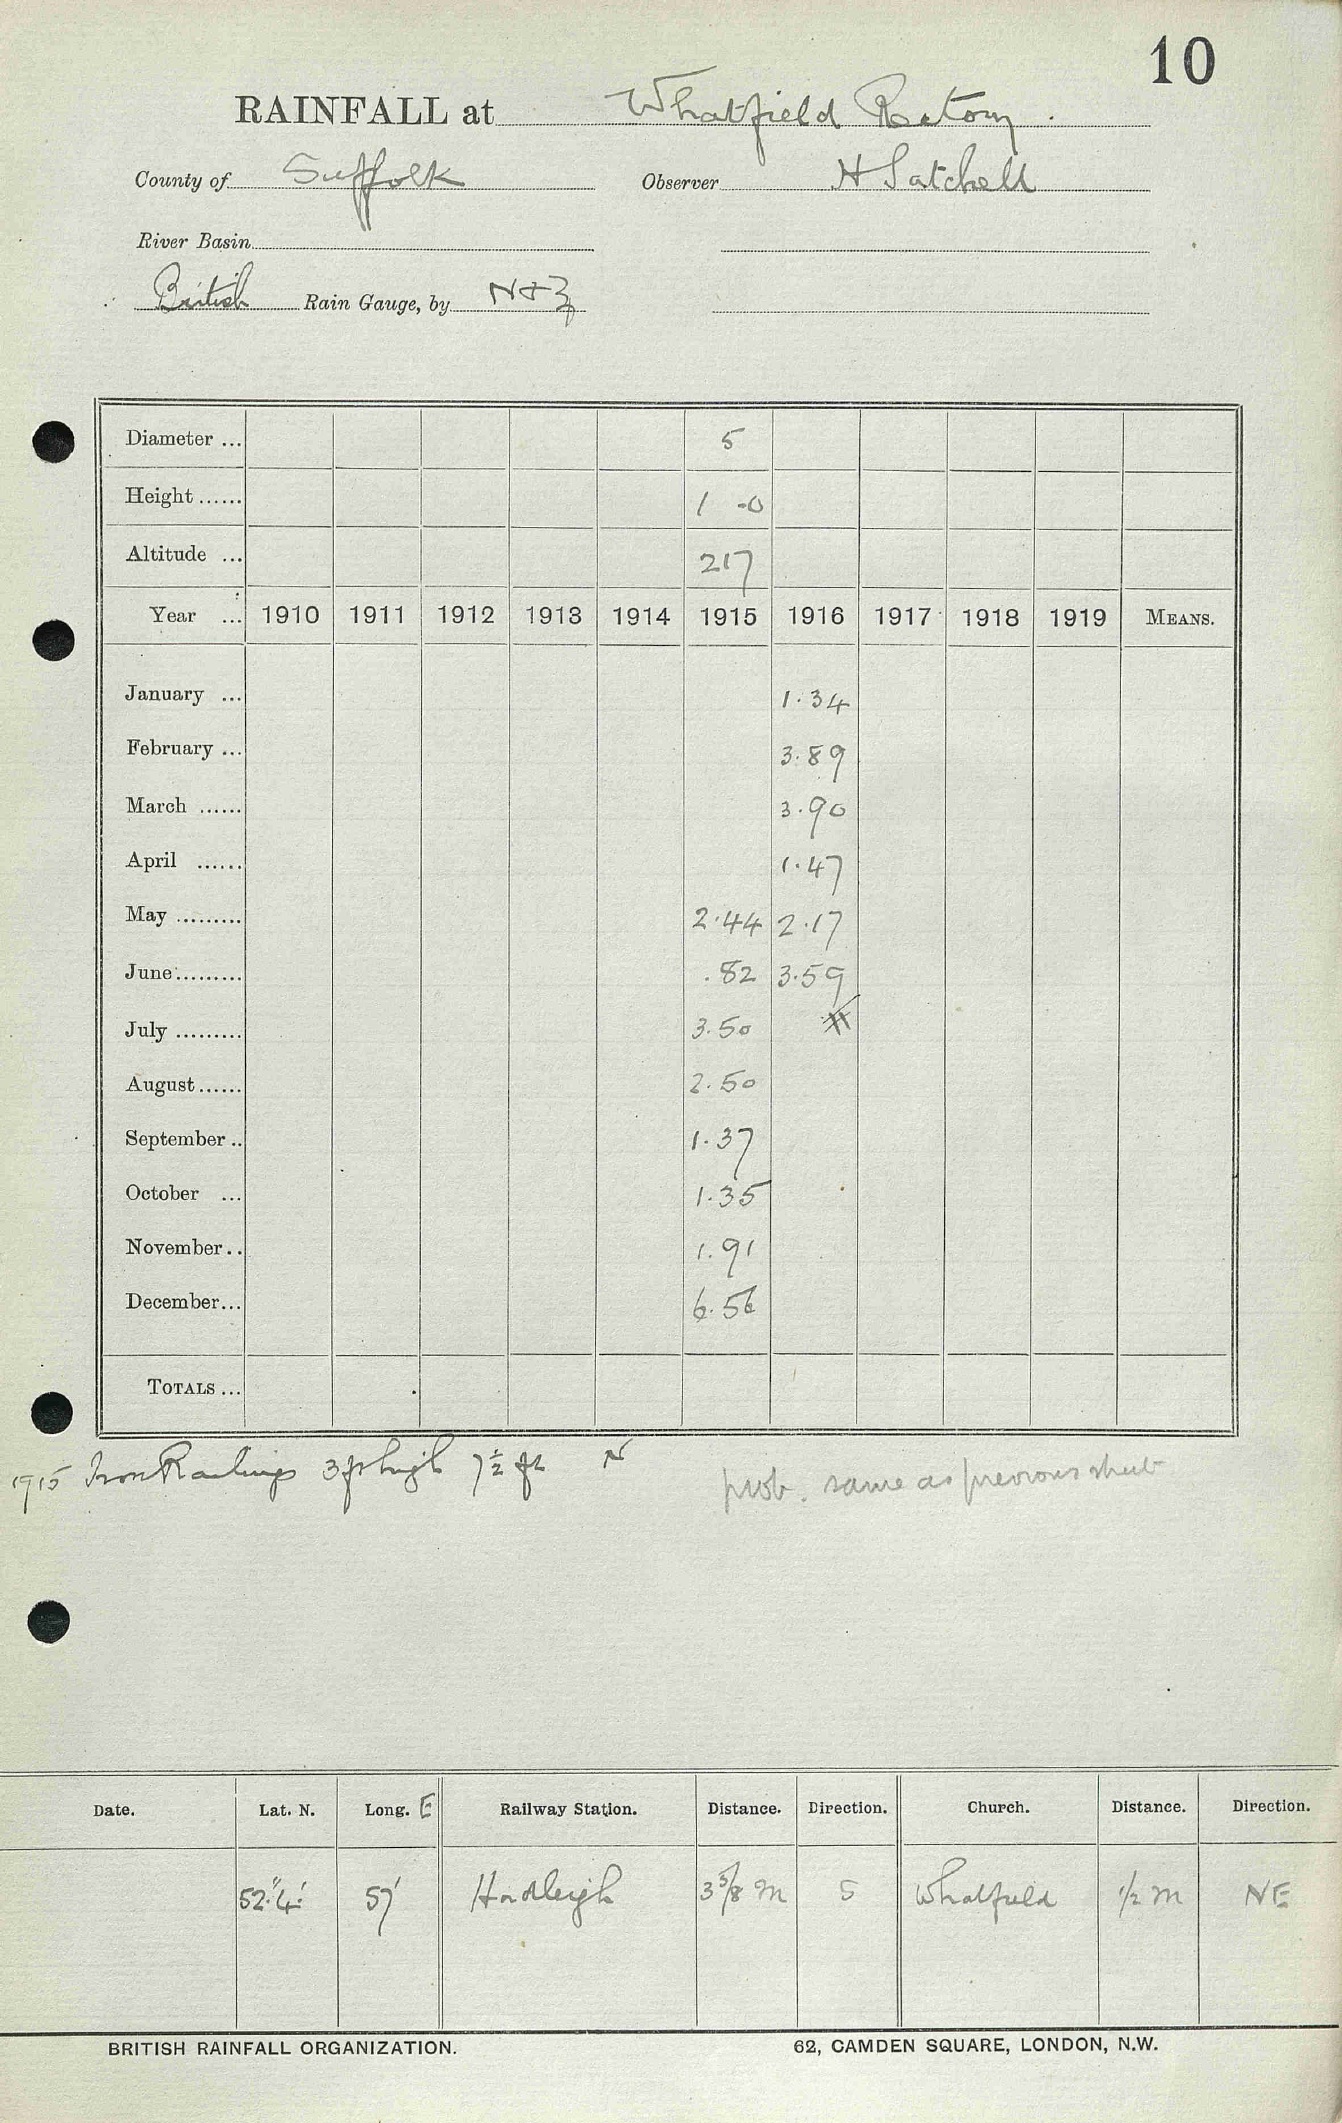 10
RAINFALL at Whatfield Rectory.
County of Suffolk Observer H Satchell
River Basin
British Rain Gauge, by N & Z
Diameter ... 5
Height ...... 1 -0
Altitude ... 217
Year ... 1910 1911 1912 1913 1914 1915 1916 1917 1918 1919 MEANS.
January ... 1.34
February ... 3.89
March ...... 3.90
April ...... 1.47
May ......... 2.44 2.17
June ......... .82 3.59
July ......... 3.50
August ...... 2.50
September .. 1.37
October ... 1.35
November .. 1.91
December ... 6.56
TOTALS ...
1915 Iron Railings 3 ft high 7½ ft N
prob. same as previous sheet
Date. Lat. N. Long. E Railway Station. Distance. Direction. Church. Distance. Direction.
52° 4' 57' Hadleigh 3 5/8 m S Whatfield 1/2 m NE
BRITISH RAINFALL ORGANIZATION. 62, CAMDEN SQUARE, LONDON, N.W.